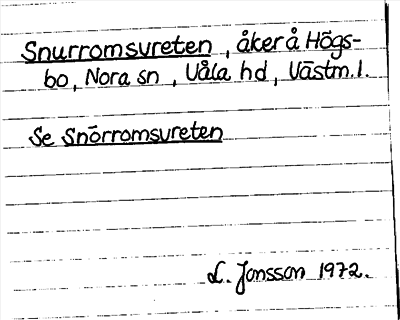 Snurromsvreten, åker å Högs-
bo, Nora sn, Våla hd, Västm.l.
Se Snörromsvreten
L. Jonsson 1972.